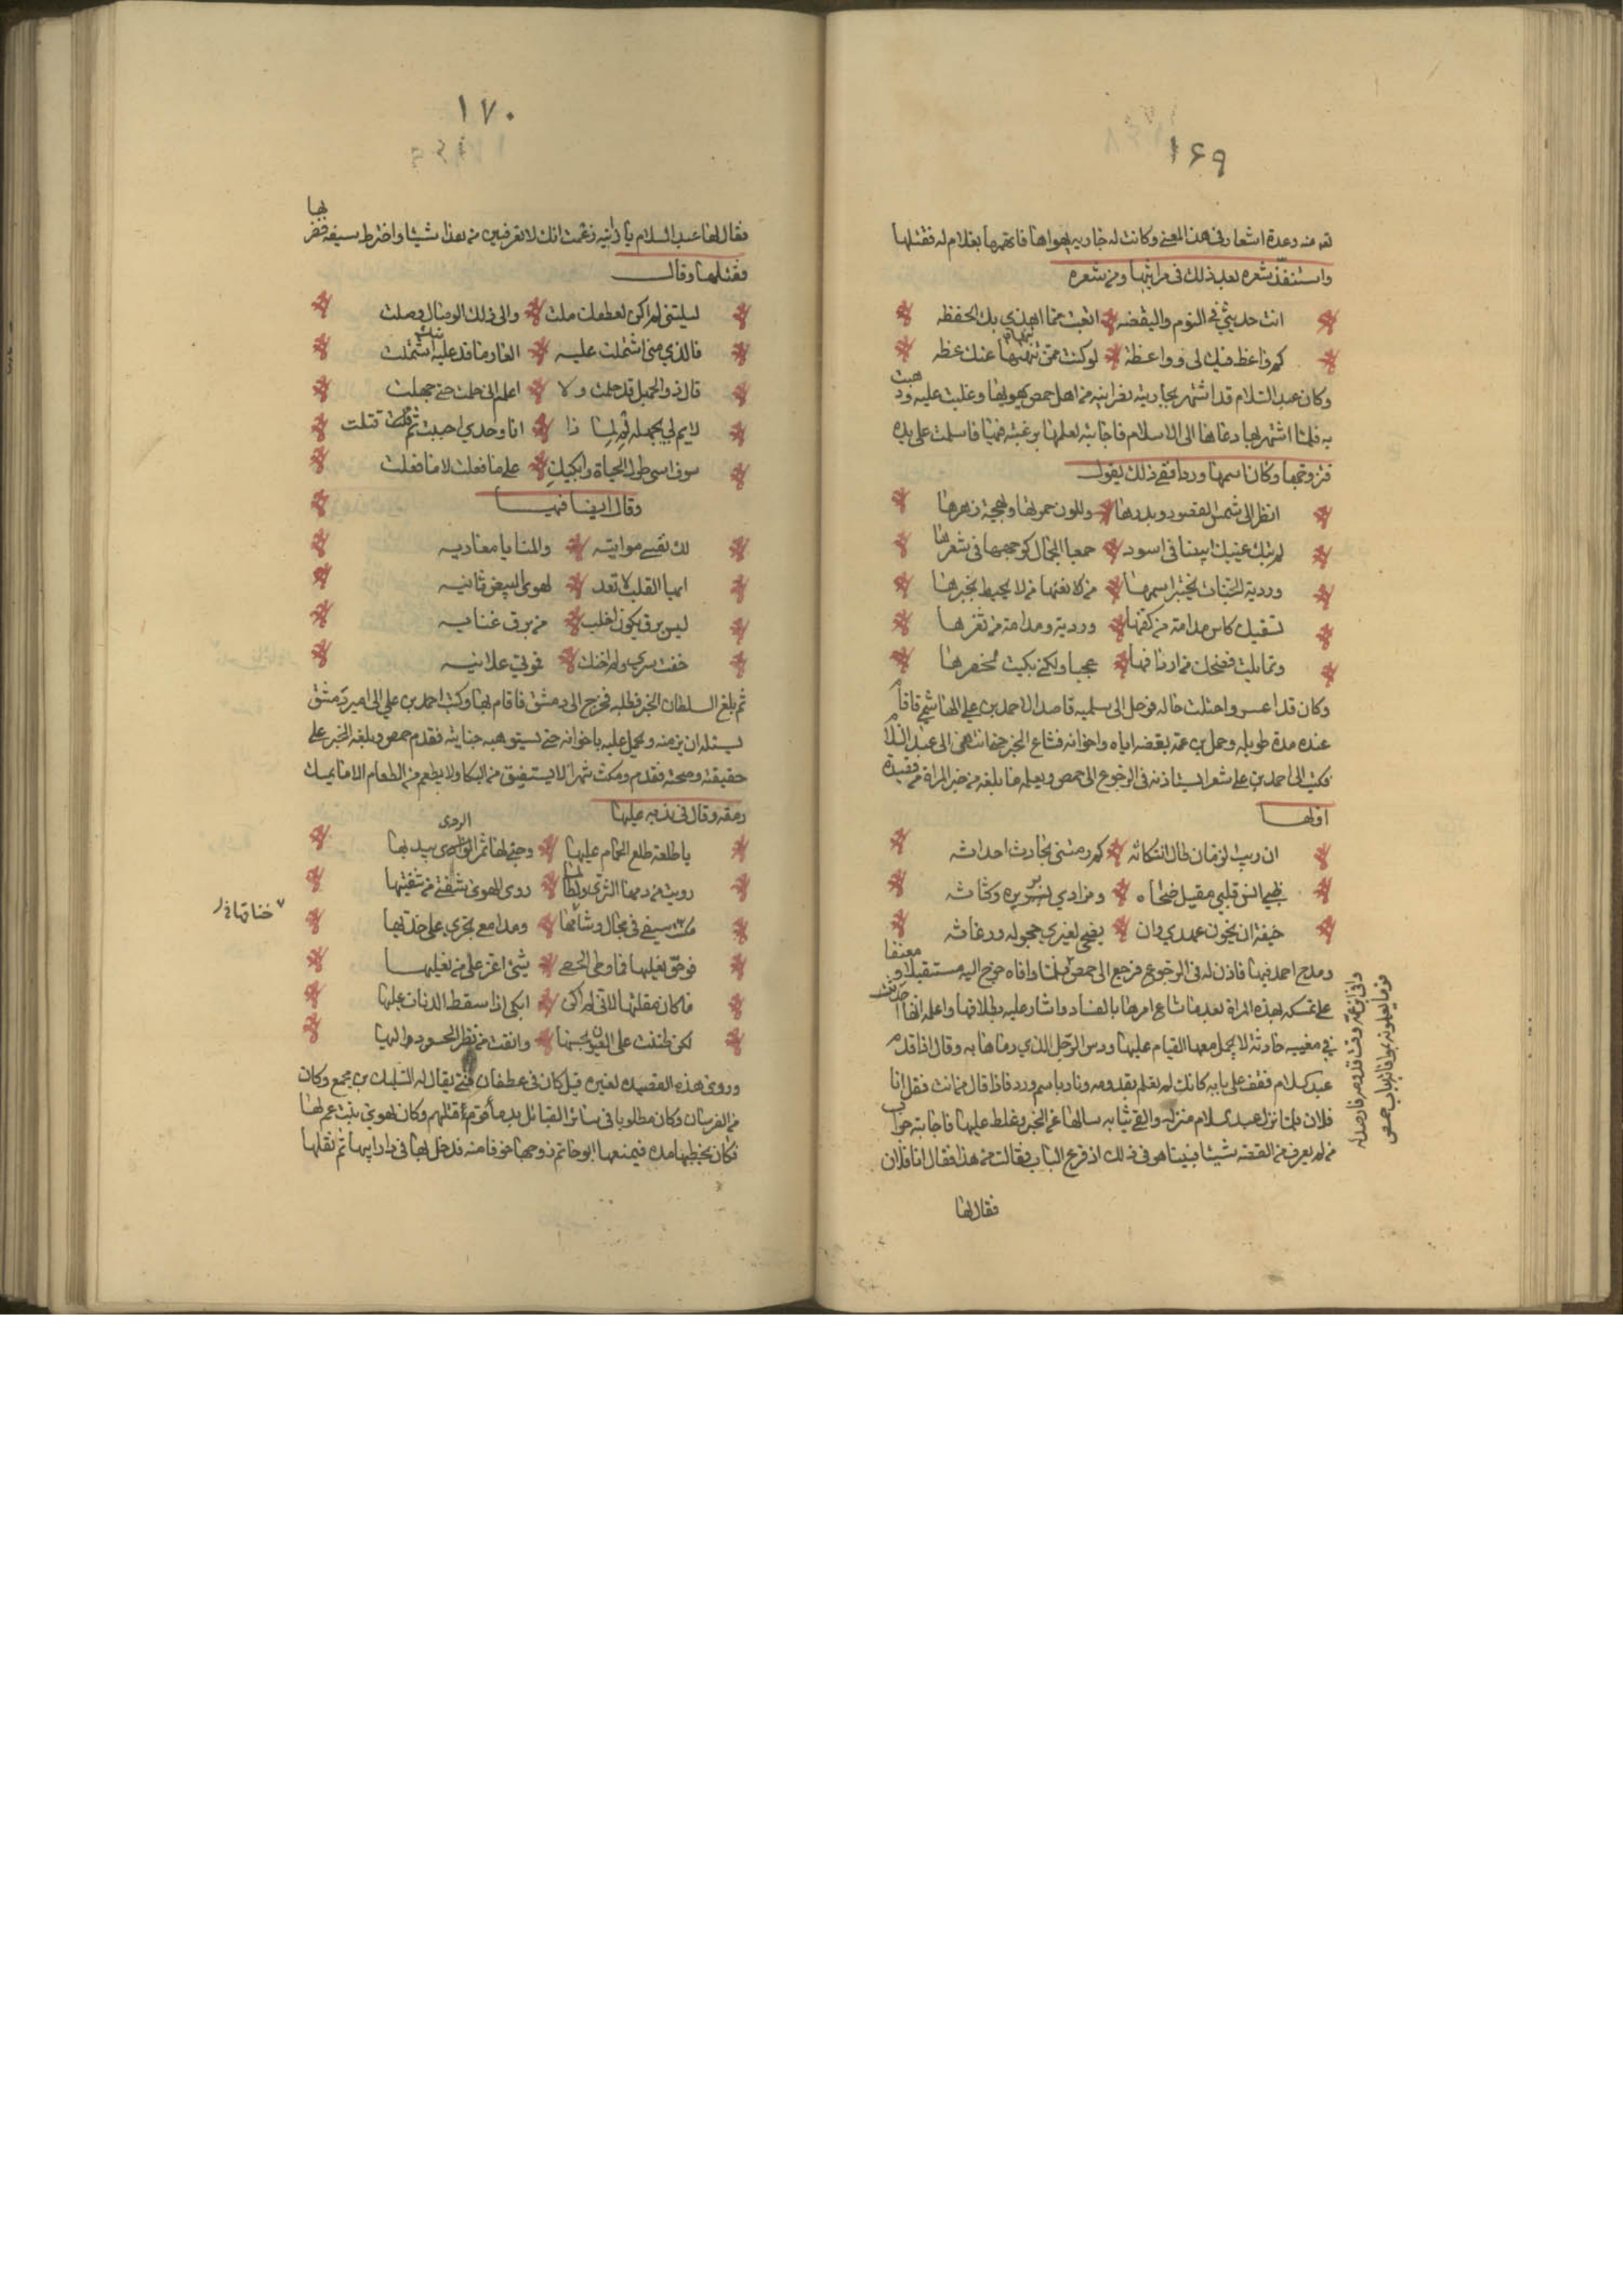 ١۶٩
له منه وعدة اشعار فى هذا المعنى وكانت له جاريه يهواها فاتهمها بغلام له فقتلها
واستنفذ شعره بعد ذلك فى مراثيها ومن شعره
انت حديثي فى النوم واليقضه اتعبت مما اهذي بك الحفظه
كم واعظ فيك لى وواعظة لو كنت ممن تنهاه عنك عظه
وكان عبد السلام قد اشتهر بجاريته نصرانيه من اهل حمص يهويها وغلبت عليه وذهبت
به فلما اشتهر بها دعاها الى الاسلام فاجابته لعلمها برغبته فيها فاسلمت على يده
فتزوجها وكان اسمها ورد ففي ذلك يقول
انظر الى شمس القصور وبدرها وللون حمرتها وبهجة زهرها
لم تبك عينك ابيضا فى اسود جمع الجمال كوجهها فى شعرها
وردية الجنات يختبر اسمها من نعتها من لا يحيط بخبرها
تسقيك كاس مدامة من كفها وردية ومدامة من ثغرها
وتمايلت فضحكت من اردافها عجبا ولكني بكيت لخصرها
وكان قد اعسر واختلت حاله فرحل الى سلميه قاصدا لاحمد بن علي الهاشمي فاقام
عنده مدة طويله وحمل بن عمه بغضه اياه واخوانه فشاع الخبر حتى انتهى الى عبد السلام
فكتب الى احمد بن علي شعرا يستاذنه فى الرجوع الى حمص ويعلمه ما بلغه من خبر المراة من قصيدة
اولها
ان ريب الزمان طال انتكاثه كم رمتنى بحادث احداثه
ظبي انس قلبي مقيل ضحاه وفوادي بريره وكباثه
خيفة ان يخون عهدي وان يضحي لغيري حجوله ورعاثه
ومدح احمد فيها فاذن له فى الرجوع فرجع الى حمص فلما وافاه خرج اليه مستقبلا ومعنفا
على تمسكه بهذه المراة بعد ما شاع امرها بالفساد واشار عليه بطلاقها واعلمه انها احدثت
في مغيبه حادثة لا يجمل معها المقام عليها ودس الرجل الذي رماها به وقال اذا قدم
عبد السلام فقف على بابه كانك لم تعلم بقدومه وناد باسم ورد فاذا قال من انت فقل انا
فلان فلما نزل عبد السلام منزله والقى ثيابه سالها عن الخبر وغلظ عليها فاجابته جواب
من لم يعرف من القصة شيئا فبينا هو فى ذلك اذ قرع الباب فقالت من هذا فقال انا فلان
فقال لها
وافى ابن عمه وقت قدومه فارصد له
قوما يعلمونه بموافاته باب حمص
١٧٠
فقال لها عبد السلام يا زانيه زعمت انك لا تعرفين من هذا شيئا واخترط سيفه فضربها
فقتلها وقال
ليتنى لم اكن لعطفك ملت والى ذلك الوصال وصلت
فالذي منى اشتملت عليه العار ما قد عليه اشتملت
قال ذو الجهل قد حلمت ولا اعلم انى حلمت حتى جهلت
لايم لى بجهله لم لماذا انا وحدي احببت ثم قتلت
سوف اسى طول الحياة وابكيك على ما فعلت لا ما فعلت
وقال ايضا فيها
لك نفسي مواتيه والمنايا معاديه
ايها القلب لا تعد لهوى البيض ثانيه
ليس برق يكون اخلب من برق غانيه
خنت سري ولم اخنك فموتي علانيه
ثم بلغ السلطان الخبر فطلبه فخرج الى دمشق فاقام بها وكتب احمد بن علي الى امير دمشق
يسئله ان يؤمنه ويحمل عليه باخوانه حتى يستوهبه جنايته فقدم حمص وبلغه الخبر على
حقيقته وصحته فقدم ومكث شهرا لا يستفيق من البكا ولا يطعم من الطعام الا ما يمسك
رمقه وقال فى ندبه عليها
يا طلعة طلع الحمام عليها وجنى لها ثمر الردى بيديها
رويت من دمها الثرى ولطالما روى الهوى شفتي من شفتيها
مكنت سيفي فى مجال وشاحها ومدامع تجري على خديها
خناقها
فوحق نعليها فما وطئ الحصى شئ اعز على من نعليها
ما كان مقتلها لانى لم اكن ابكى اذا سقط الذباب عليها
لكن ظننت على العيون بحسنها وانفت من نظر الحسود اليها
وروى هذه القصيده لغيره قيل كان فى غطفان فتى يقال له السليك بن مجمع وكان
من الفرسان وكان مطلوبا فى سائر القبائل بدماء قوم قتلهم وكان يهوى بنت عم لها
فكان يخطبها مده فيمنعها ابوها ثم زوجها خوفا منه فدخل بها فى دار ابيها ثم نقلها